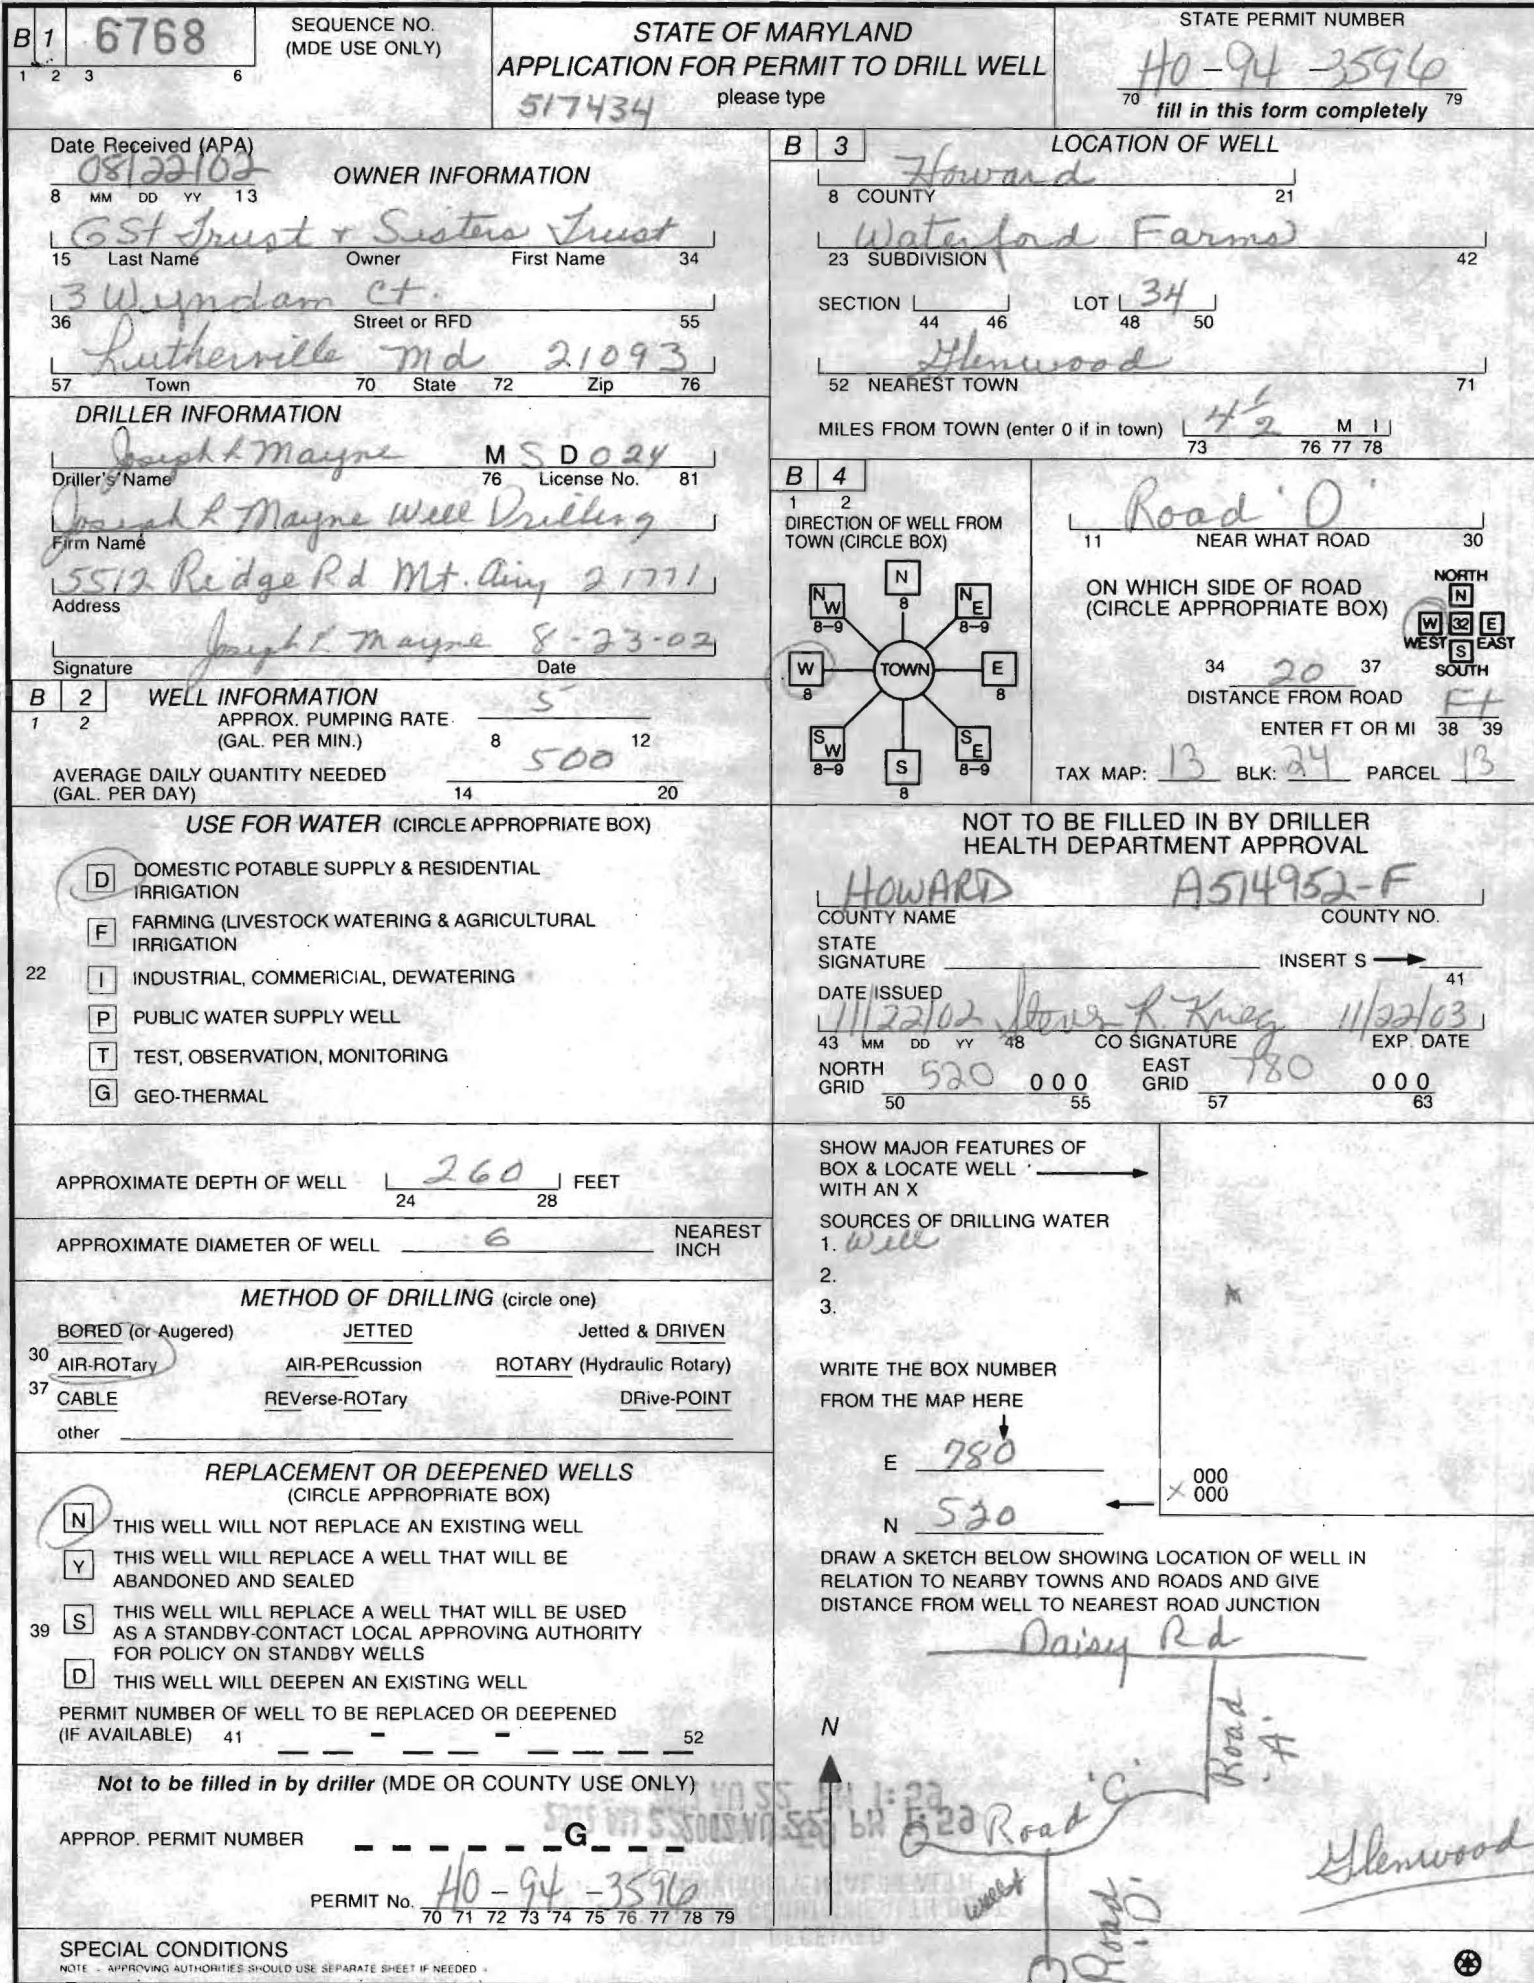 B 1 6768
1 2 3 6
SEQUENCE NO.
(MDE USE ONLY)
STATE OF MARYLAND
APPLICATION FOR PERMIT TO DRILL WELL
please type
517434
STATE PERMIT NUMBER
HO-94-3596
70 fill in this form completely 79
Date Received (APA)
08/22/02
8 MM DD YY 13
OWNER INFORMATION
GSt Trust + Sisters Trust
15 Last Name Owner First Name 34
3 Wyndam Ct.
36 Street or RFD 55
Lutherville Md 21093
57 Town 70 State 72 Zip 76
DRILLER INFORMATION
Joseph L Mayne M S D 024
Driller's Name 76 License No. 81
Joseph L Mayne Well Drilling
Firm Name
5512 Ridge Rd Mt. Airy 21771
Address
Joseph L Mayne 8-23-02
Signature Date
B 2 WELL INFORMATION
1 2
APPROX. PUMPING RATE 5
(GAL. PER MIN.) 8 12
AVERAGE DAILY QUANTITY NEEDED 500
(GAL. PER DAY) 14 20
USE FOR WATER (CIRCLE APPROPRIATE BOX)
D DOMESTIC POTABLE SUPPLY & RESIDENTIAL
IRRIGATION
F FARMING (LIVESTOCK WATERING & AGRICULTURAL
IRRIGATION
22 I INDUSTRIAL, COMMERICIAL, DEWATERING
P PUBLIC WATER SUPPLY WELL
T TEST, OBSERVATION, MONITORING
G GEO-THERMAL
APPROXIMATE DEPTH OF WELL 260 FEET
24 28
APPROXIMATE DIAMETER OF WELL 6 NEAREST
INCH
METHOD OF DRILLING (circle one)
BORED (or Augered) JETTED Jetted & DRIVEN
30 AIR-ROTary AIR-PERcussion ROTARY (Hydraulic Rotary)
37 CABLE REVerse-ROTary DRive-POINT
other
REPLACEMENT OR DEEPENED WELLS
(CIRCLE APPROPRIATE BOX)
N THIS WELL WILL NOT REPLACE AN EXISTING WELL
Y THIS WELL WILL REPLACE A WELL THAT WILL BE
ABANDONED AND SEALED
39 S THIS WELL WILL REPLACE A WELL THAT WILL BE USED
AS A STANDBY-CONTACT LOCAL APPROVING AUTHORITY
FOR POLICY ON STANDBY WELLS
D THIS WELL WILL DEEPEN AN EXISTING WELL
PERMIT NUMBER OF WELL TO BE REPLACED OR DEEPENED
(IF AVAILABLE) 41 - - 52
Not to be filled in by driller (MDE OR COUNTY USE ONLY)
APPROP. PERMIT NUMBER G
PERMIT No. HO-94-3596
70 71 72 73 74 75 76 77 78 79
SPECIAL CONDITIONS
NOTE - APPROVING AUTHORITIES SHOULD USE SEPARATE SHEET IF NEEDED -
B 3 LOCATION OF WELL
Howard
8 COUNTY 21
Waterford Farms
23 SUBDIVISION 42
SECTION LOT 34
44 46 48 50
Glenwood
52 NEAREST TOWN 71
MILES FROM TOWN (enter 0 if in town) 4 1/2 M I
73 76 77 78
B 4
1 2
DIRECTION OF WELL FROM
TOWN (CIRCLE BOX)
N
8
NW NE
8-9 8-9
W TOWN E
8 8
SW SE
8-9 8-9
S
8
Road 'D'
11 NEAR WHAT ROAD 30
ON WHICH SIDE OF ROAD
(CIRCLE APPROPRIATE BOX)
NORTH
N
W 32 E
WEST S EAST
SOUTH
34 20 37
DISTANCE FROM ROAD
Ft
ENTER FT OR MI 38 39
TAX MAP: 13 BLK: 24 PARCEL 13
NOT TO BE FILLED IN BY DRILLER
HEALTH DEPARTMENT APPROVAL
HOWARD A514952-F
COUNTY NAME COUNTY NO.
STATE
SIGNATURE INSERT S
41
DATE ISSUED
11/22/02 Steven R. Krieg 11/22/03
43 MM DD YY 48 CO SIGNATURE EXP. DATE
NORTH GRID 520 000 EAST GRID 780 000
50 55 57 63
SHOW MAJOR FEATURES OF
BOX & LOCATE WELL
WITH AN X
SOURCES OF DRILLING WATER
1. Well
2.
3.
WRITE THE BOX NUMBER
FROM THE MAP HERE
E 780
N 520
000
X 000
DRAW A SKETCH BELOW SHOWING LOCATION OF WELL IN
RELATION TO NEARBY TOWNS AND ROADS AND GIVE
DISTANCE FROM WELL TO NEAREST ROAD JUNCTION
Daisy Rd
N
Road 'A'
Road 'C'
Glenwood
Road 'D'